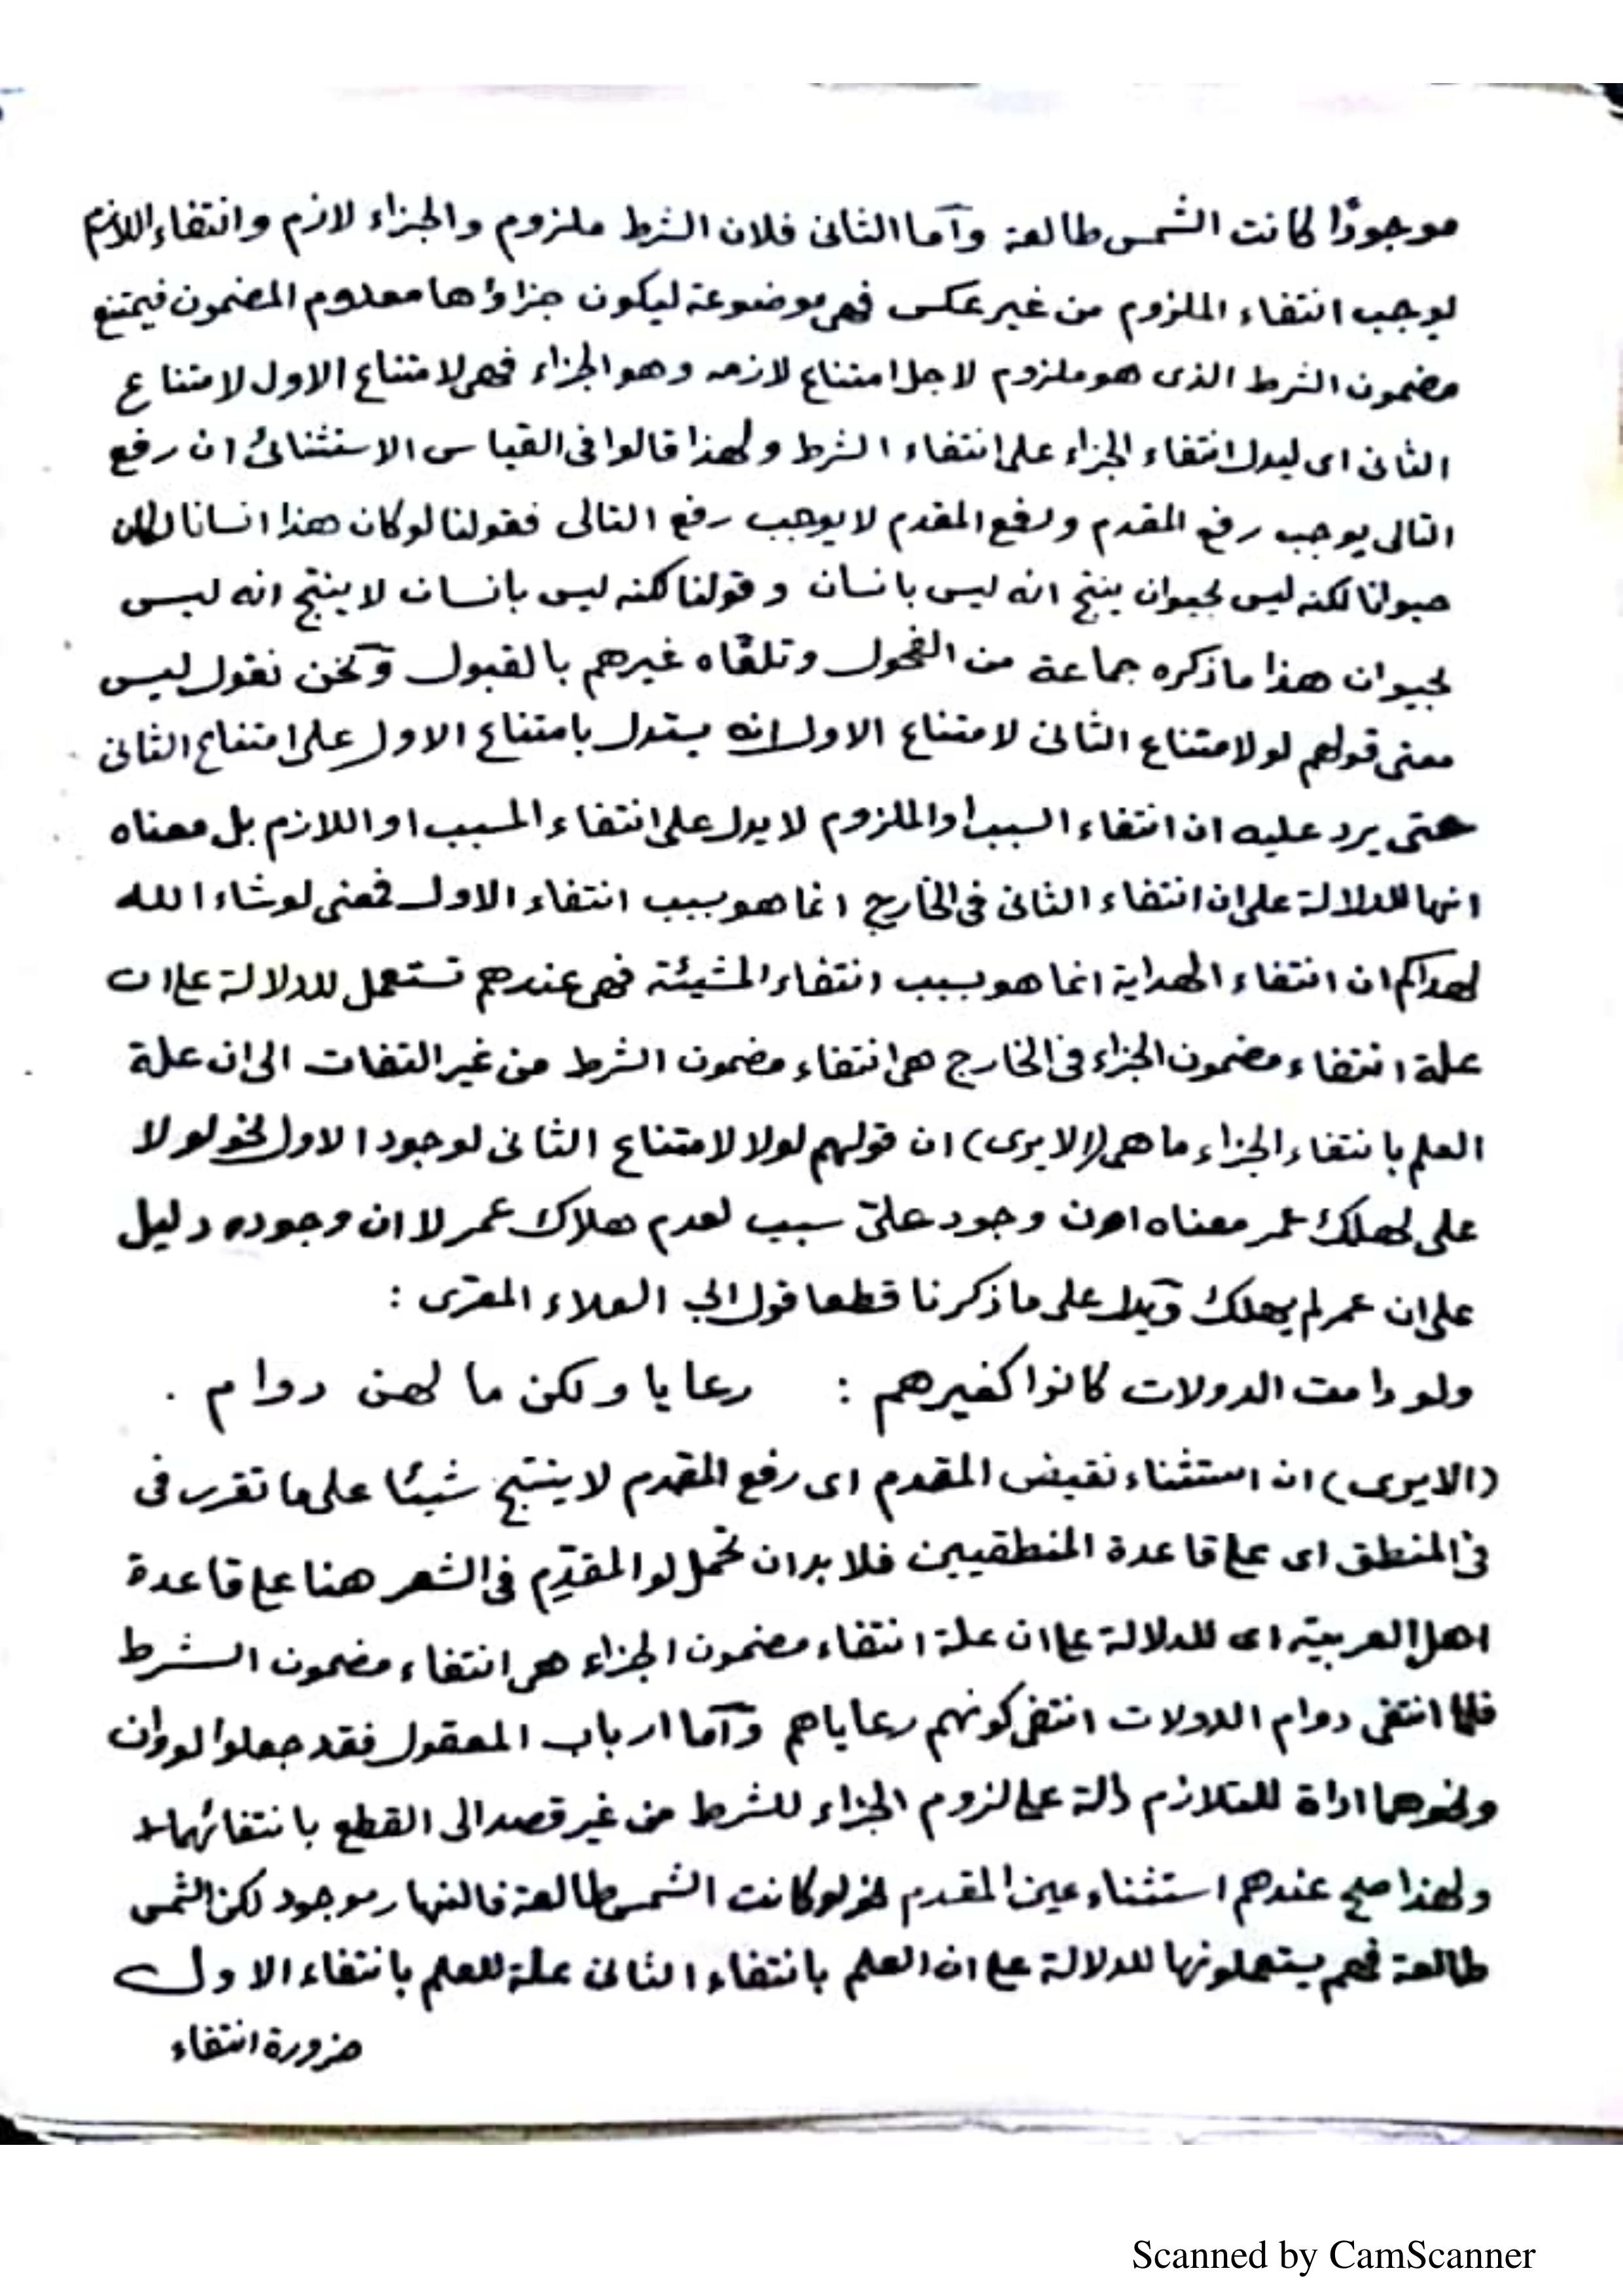 موجودًا كانت الشمس طالعة وآما الثانى فلان الشرط ملزوم والجزاء لازم وانتفاء اللازم
يوجب انتفاء الملزوم من غير عكس فهى موضوعة ليكون جزاؤها معدوم المضمون فيمتنع
مضمون الشرط الذى هو ملزوم لاجل امتناع لازمه وهو الجزاء فهى لامتناع الاول لامتناع
الثانى اى ليدل انتفاء الجزاء على انتفاء الشرط ولهذا قالوا فى القياس الاستثنائى ان رفع
التالى يوجب رفع المقدم ورفع المقدم لا يوجب رفع التالى فقولنا لو كان هذا انسانا لكان
حيوانا لكنه ليس بحيوان ينتج انه ليس بانسان وقولنا لكنه ليس بانسان لا ينتج انه ليس
بحيوان هذا ما ذكره جماعة من الفحول وتلقاه غيرهم بالقبول وٓنحن نقول ليس
معنى قولهم لو لامتناع الثانى لامتناع الاول انه يستدل بامتناع الاول على امتناع الثانى
حتى يرد عليه ان انتفاء السبب او الملزوم لا يدل على انتفاء المسبب او اللازم بل معناه
انها للدلالة على ان انتفاء الثانى فى الخارج انما هو بسبب انتفاء الاول فمعنى لو شاء الله
لهداكم ان انتفاء الهداية انما هو بسبب انتفاء المشيئة فهى عندهم تستعمل للدلالة على ان
علة انتفاء مضمون الجزاء فى الخارج هى انتفاء مضمون الشرط من غير التفات الى ان علة
العلم بانتفاء الجزاء ما هى (الا يرى) ان قولهم لولا لامتناع الثانى لوجود الاول نحو لولا
على لهلك عمر معناه ان وجود علىّ سبب لعدم هلاك عمر لا ان وجوده دليل
على ان عمر لم يهلك وٓيدل على ما ذكرنا قطعا قول ابى العلاء المعرّى :
ولو دامت الدولات كانوا كغيرهم : رعايا ولكن ما لهن دوام .
(الا يرى) ان استثناء نقيض المقدم اى رفع المقدم لا ينتج شيئا على ما تقرر فى
فى المنطق اى على قاعدة المنطقيين فلا بد ان تحمل لو المقدّم فى الشعر هنا على قاعدة
اهل العربيّة اى للدلالة على ان علة انتفاء مضمون الجزاء هى انتفاء مضمون الشرط
فلما انتفى دوام الدولات انتفى كونهم رعاياهم وٓآما ارباب المعقول فقد جعلوا لو وان
ونحوهما اداة للتلازم دالة على لزوم الجزاء للشرط من غير قصد الى القطع بانتفائهما
ولهذا صح عندهم استثناء عين المقدم نحو لو كانت الشمس طالعة فالنهار موجود لكن الشمس
طالعة فهم يستعملونها للدلالة على ان العلم بانتفاء الثانى علة للعلم بانتفاء الاول
ضرورة انتفاء
Scanned by CamScanner